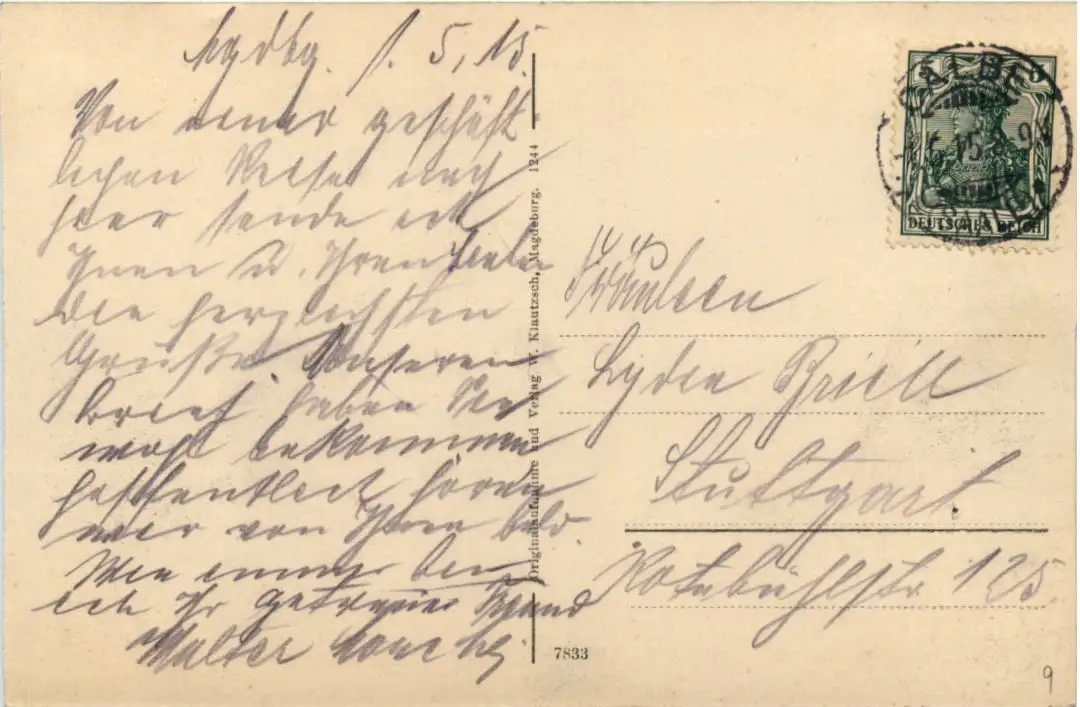 Mgdbg. 1. 5, 15.
Von einer geschäft
lichen Reise nach
hier sende ich
Ihnen u. Ihren
die herzlichsten
Grüße. Unseren
Brief haben Sie
wohl bekommen
hoffentlich hören
wir von Ihnen bald.
Wie immer bin
ich Ihr getreuer Freund
Walter
Originalaufnahme und Verlag W. Klautzsch, Magdeburg. 1244
CALBE
DEUTSCHES REICH
Fräulein
Lydia Briell
Stuttgart.
Rotebühlstr 125.
7833
9